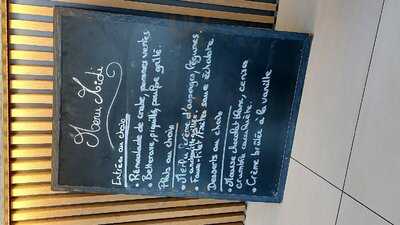 Menu Midi
Entrées au choix
• Rémoulade de crabe, pommes vertes
• Betterave, piquillos, poulpe grillé.
Plats au choix
• Merlu, crème d'asperges, légumes
• Faux-Filet frites sauce échalote
Desserts au choix
• Mousse chocolat blanc, cerise
crumble cacahuète.
• Crème brûlée à la vanille